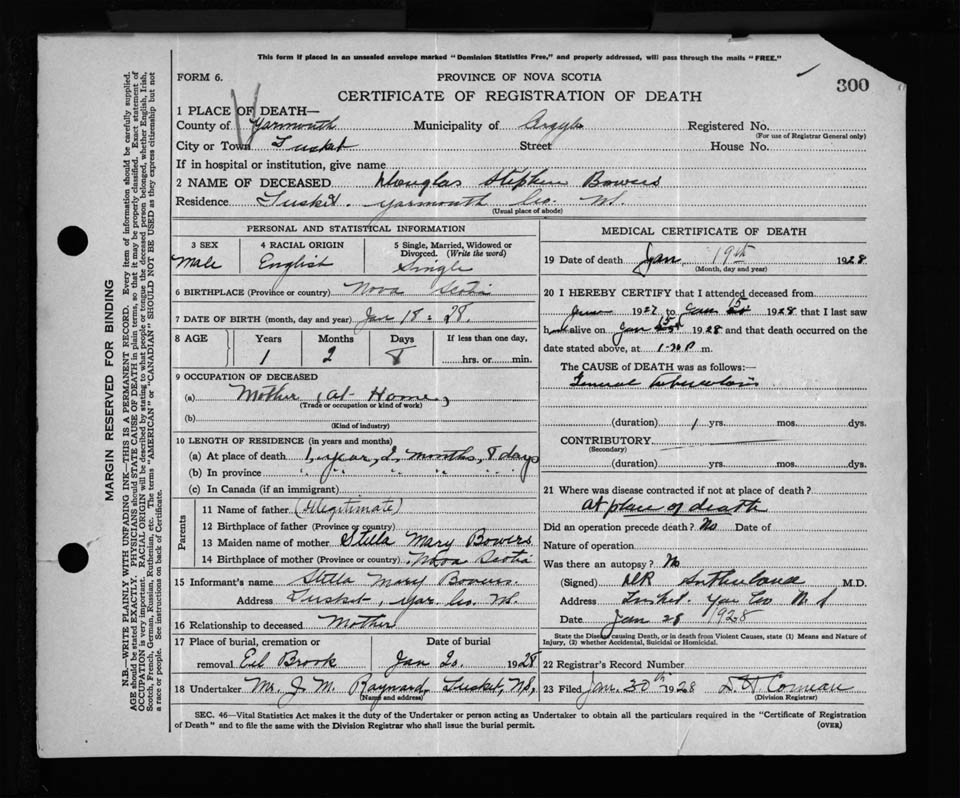 This form if placed in an unsealed envelope marked "Dominion Statistics Free," and properly addressed, will pass through the mails "FREE."
FORM 6.
PROVINCE OF NOVA SCOTIA
300
CERTIFICATE OF REGISTRATION OF DEATH
1 PLACE OF DEATH—
County of Yarmouth Municipality of Argyle Registered No.
(For use of Registrar General only)
City or Town Tusket Street House No.
If in hospital or institution, give name
2 NAME OF DECEASED Douglas Stephen Bowers
Residence Tusket. Yarmouth Co. NS.
(Usual place of abode)
PERSONAL AND STATISTICAL INFORMATION
3 SEX 4 RACIAL ORIGIN 5 Single, Married, Widowed or Divorced. (Write the word)
Male English Single
6 BIRTHPLACE (Province or country) Nova Scotia
7 DATE OF BIRTH (month, day and year) Jan 18 = 28.
8 AGE Years Months Days If less than one day,
1 2 8 hrs. or min.
9 OCCUPATION OF DECEASED
(a) Mother (at Home,)
(Trade or occupation or kind of work)
(b)
(Kind of industry)
10 LENGTH OF RESIDENCE (in years and months)
(a) At place of death 1, year, 2 months, 8 days
(b) In province " " " " " "
(c) In Canada (if an immigrant)
Parents
11 Name of father (Illegitimate)
12 Birthplace of father (Province or country)
13 Maiden name of mother Stella Mary Bowers
14 Birthplace of mother (Province or Country) Nova Scotia
15 Informant's name Stella Mary Bowers.
Address Tusket, Yar. Co. NS.
16 Relationship to deceased Mother
17 Place of burial, cremation or Date of burial
removal Eel Brook Jan 20. 1928
18 Undertaker Mr. J. M. Raynard, Tusket, NS,
(Name and address)
MEDICAL CERTIFICATE OF DEATH
19 Date of death Jan. 19th 1928
(Month, day and year)
20 I HEREBY CERTIFY that I attended deceased from
June 1927 to Jan 15 1928 that I last saw
h alive on Jan 15 1928 and that death occurred on the
date stated above, at 1-30 P m.
The CAUSE of DEATH was as follows:—
General tuberculosis
(duration) 1 yrs. mos. dys.
CONTRIBUTORY
(Secondary)
(duration) yrs. mos. dys.
21 Where was disease contracted if not at place of death?
At place of death
Did an operation precede death? No Date of
Nature of operation
Was there an autopsy? No
(Signed) Sutherland M.D.
Address Tusket. Yar Co N S
Date Jan 28 1928
State the Disease causing Death, or in death from Violent Causes, state (1) Means and Nature of Injury, (2) whether Accidental, Suicidal or Homicidal.
22 Registrar's Record Number
23 Filed Jan. 30th 1928 Comeau
(Division Registrar)
SEC. 46—Vital Statistics Act makes it the duty of the Undertaker or person acting as Undertaker to obtain all the particulars required in the "Certificate of Registration
of Death" and to file the same with the Division Registrar who shall issue the burial permit.
(OVER)
MARGIN RESERVED FOR BINDING
N.B.—WRITE PLAINLY WITH UNFADING INK—THIS IS A PERMANENT RECORD. Every item of information should be carefully supplied.
AGE should be stated EXACTLY. PHYSICIANS should STATE CAUSE OF DEATH in plain terms, so that it may be properly classified. Exact statement of
OCCUPATION is very important. RACIAL ORIGIN will be described by stating to what people or tongue the deceased person belonged, whether English, Irish,
Scotch, French, German, Russian, Ruthenian, etc. The terms "AMERICAN" or "CANADIAN" SHOULD NOT BE USED as they express citizenship but not
a race or people. See instructions on back of Certificate.